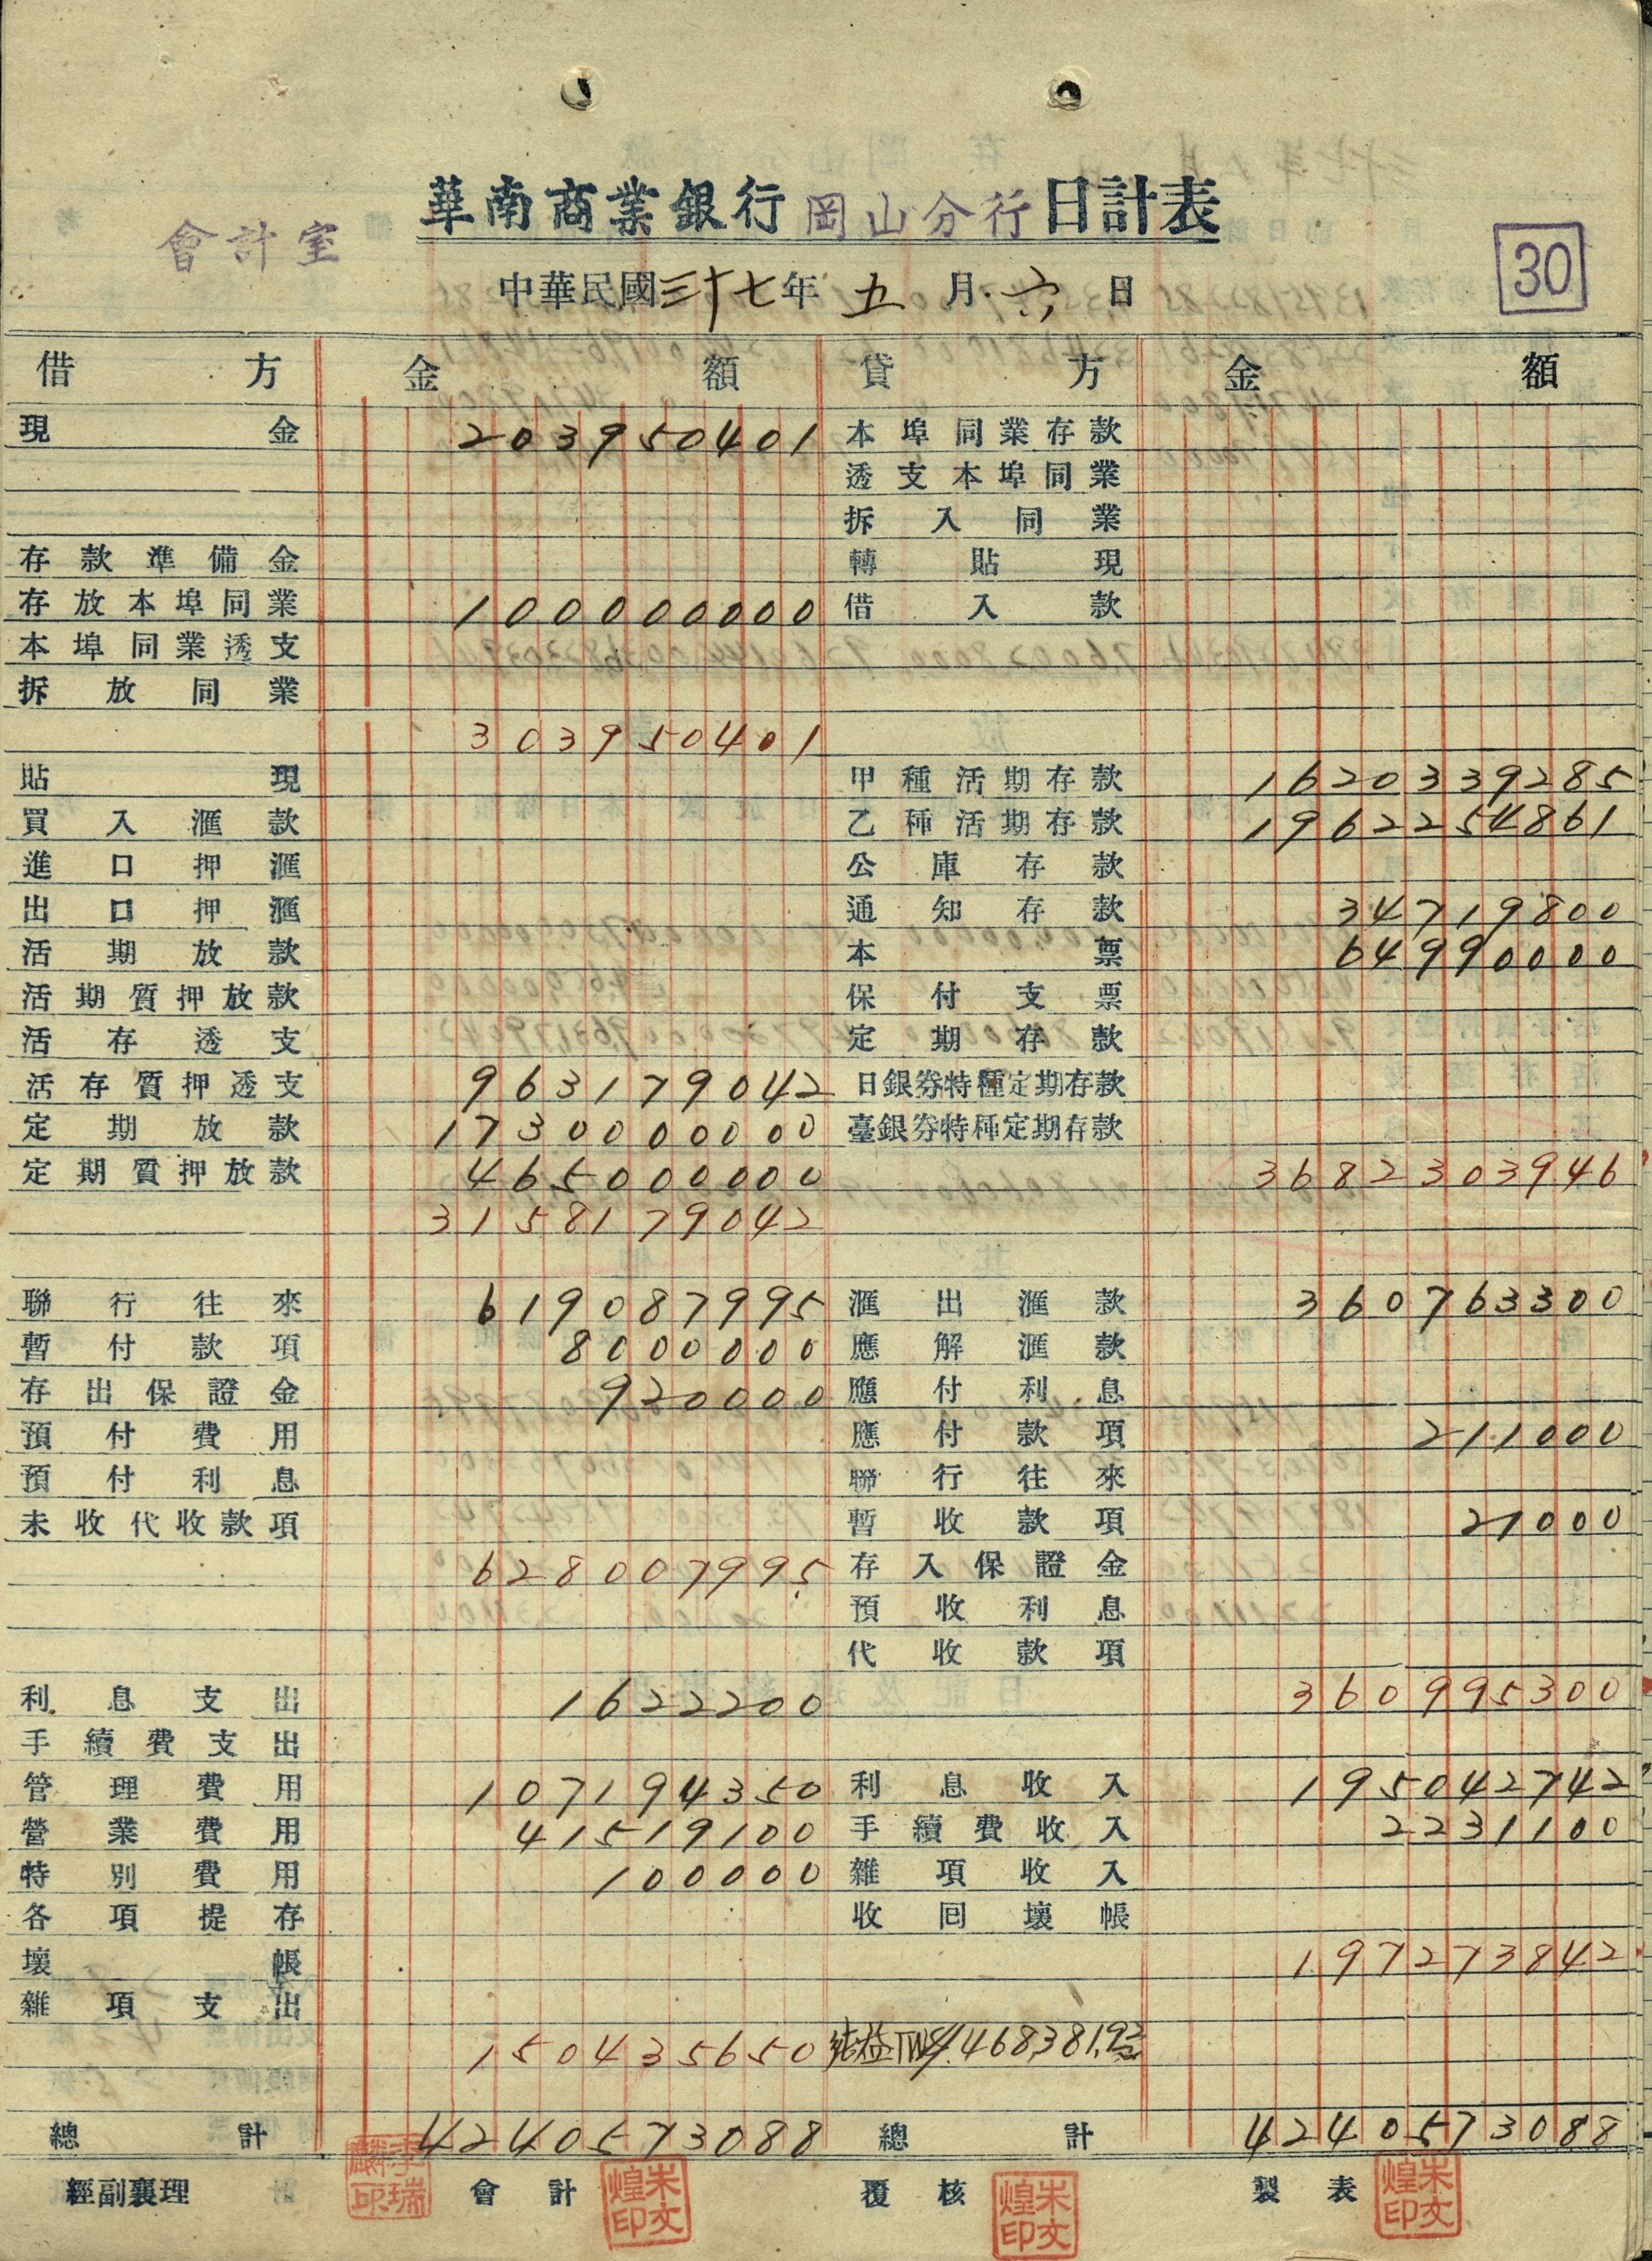 華南商業銀行 岡山分行 日計表
會計室
30
中華民國三十七年 五 月 六 日
借方 金額 貸方 金額
現金 203950401 本埠同業存款
透支本埠同業
拆入同業
存款準備金 轉貼現
存放本埠同業 100000000 借入款
本埠同業透支
拆放同業
303950401
貼現 甲種活期存款 1620339285
買入滙款 乙種活期存款 1962254861
進口押滙 公庫存款
出口押滙 通知存款 34719800
活期放款 本票 64990000
活期質押放款 保付支票
活存透支 定期存款
活存質押透支 963179042 日銀券特種定期存款
定期放款 1730000000 臺銀券特種定期存款
定期質押放款 465000000 3682303946
3158179042
聯行往來 619087995 滙出滙款 360763300
暫付款項 8000000 應解滙款
存出保證金 920000 應付利息
預付費用 應付款項 211000
預付利息 聯行往來
未收代收款項 暫收款項 21000
628007995 存入保證金
預收利息
代收款項
利息支出 1622200 360995300
手續費支出
管理費用 107194350 利息收入 195042742
營業費用 41519100 手續費收入 2231100
特別費用 100000 雜項收入
各項提存 收回壞帳
壞帳 197273842
雜項支出
150435650 純益TW$468,381.92
總計 4240573088 總計 4240573088
經副襄理 李瑞麟印 會計 朱文煌印 覆核 朱文煌印 製表 朱文煌印